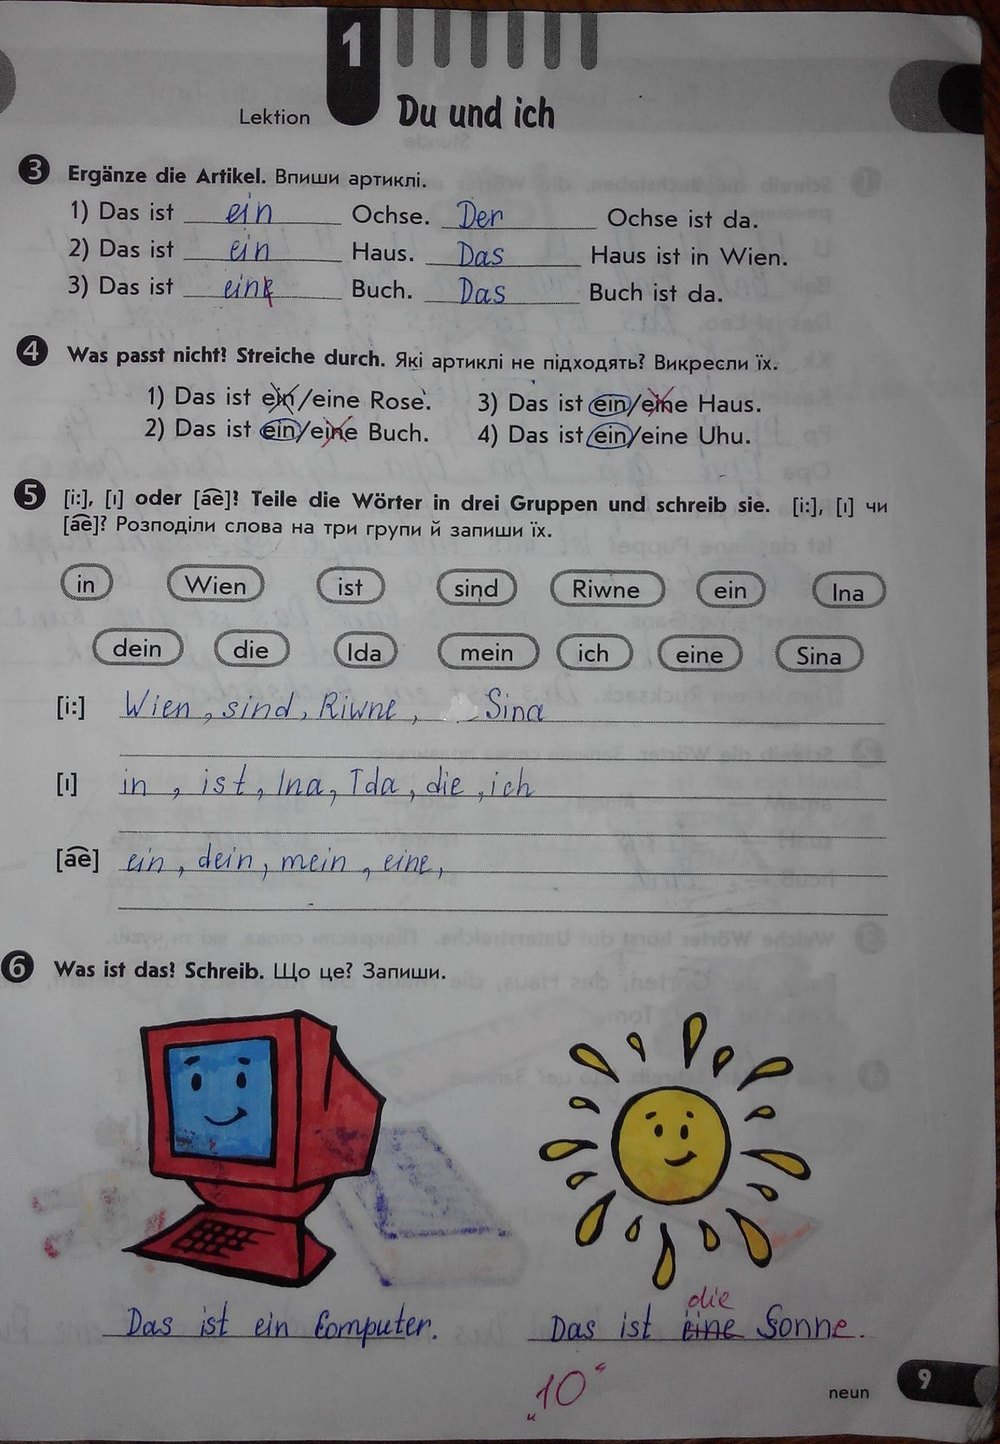 1
Lektion Du und ich
3 Ergänze die Artikel. Впиши артиклі.
1) Das ist ein Ochse. Der Ochse ist da.
2) Das ist ein Haus. Das Haus ist in Wien.
3) Das ist ein Buch. Das Buch ist da.
4 Was passt nicht? Streiche durch. Які артиклі не підходять? Викресли їх.
1) Das ist ein/eine Rose. 3) Das ist ein/eine Haus.
2) Das ist ein/eine Buch. 4) Das ist ein/eine Uhu.
5 [i:], [ı] oder [a͡e]? Teile die Wörter in drei Gruppen und schreib sie. [i:], [ı] чи
[a͡e]? Розподіли слова на три групи й запиши їх.
in Wien ist sind Riwne ein Ina
dein die Ida mein ich eine Sina
[i:] Wien, sind, Riwne, Sina
[ı] in, ist, Ina, Ida, die, ich
[a͡e] ein, dein, mein, eine,
6 Was ist das? Schreib. Що це? Запиши.
die
Das ist ein Computer. Das ist eine Sonne.
"10"
neun 9